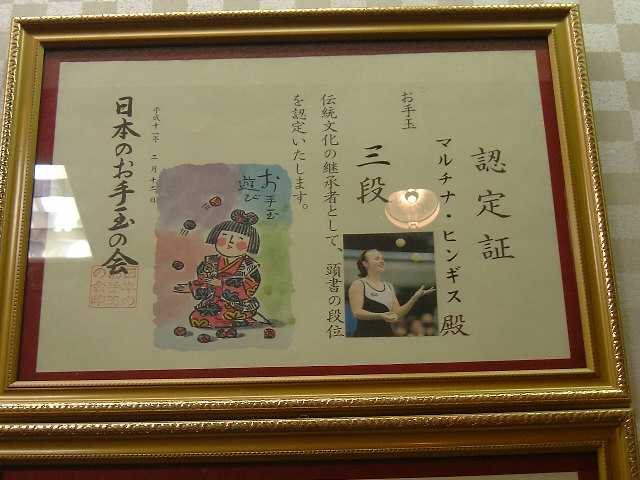 認定証
マルチナ・ヒンギス 殿
お手玉
三段
伝統文化の継承者として、頭書の段位
を認定いたします。
お手玉
遊び
平成十一年 二月十二日
日本のお手玉の会